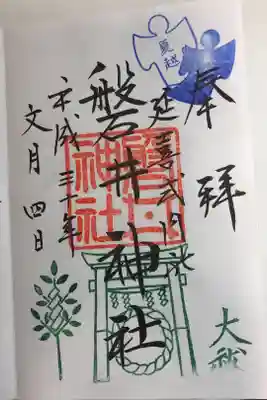 夏越
奉拝
延喜式内社
磐井神社
磐井神社
平成三十年
文月四日
大祓